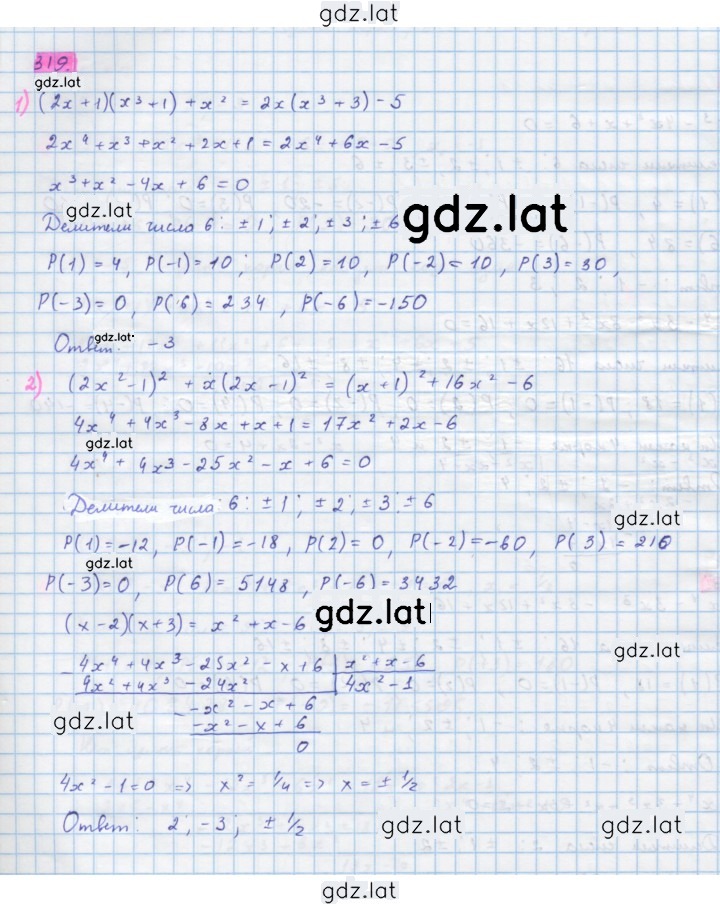 gdz.lat
319.
gdz.lat
1) (2x+1)(x³+1)+x² = 2x(x³+3)-5
2x⁴+x³+x²+2x+1 = 2x⁴+6x-5
x³+x²-4x+6=0
gdz.lat
gdz.lat
Делители числа 6: ±1; ±2; ±3; ±6
P(1)=4, P(-1)=10; P(2)=10, P(-2)=10, P(3)=30,
P(-3)=0, P(6)=234, P(-6)=-150
Ответ: -3
gdz.lat
2) (2x²-1)² + x(2x-1)² = (x+1)²+16x²-6
4x⁴+4x³-8x+x+1=17x²+2x-6
gdz.lat
4x⁴+4x3-25x²-x+6=0
Делители числа: 6: ±1; ±2; ±3; ±6
gdz.lat
P(1)=-12, P(-1)=-18, P(2)=0, P(-2)=-60, P(3)=210
gdz.lat
P(-3)=0, P(6)=5148, P(-6)=3432
gdz.lat
(x-2)(x+3)=x²+x-6
-4x⁴+4x³-25x²-x+6 | x²+x-6
4x²+4x³-24x² 4x²-1
gdz.lat
-x²-x+6
-x²-x+6
gdz.lat
0
4x²-1=0 => x²=1/4 => x=±1/2
Ответ: 2; -3; ±1/2
gdz.lat
gdz.lat
gdz.lat